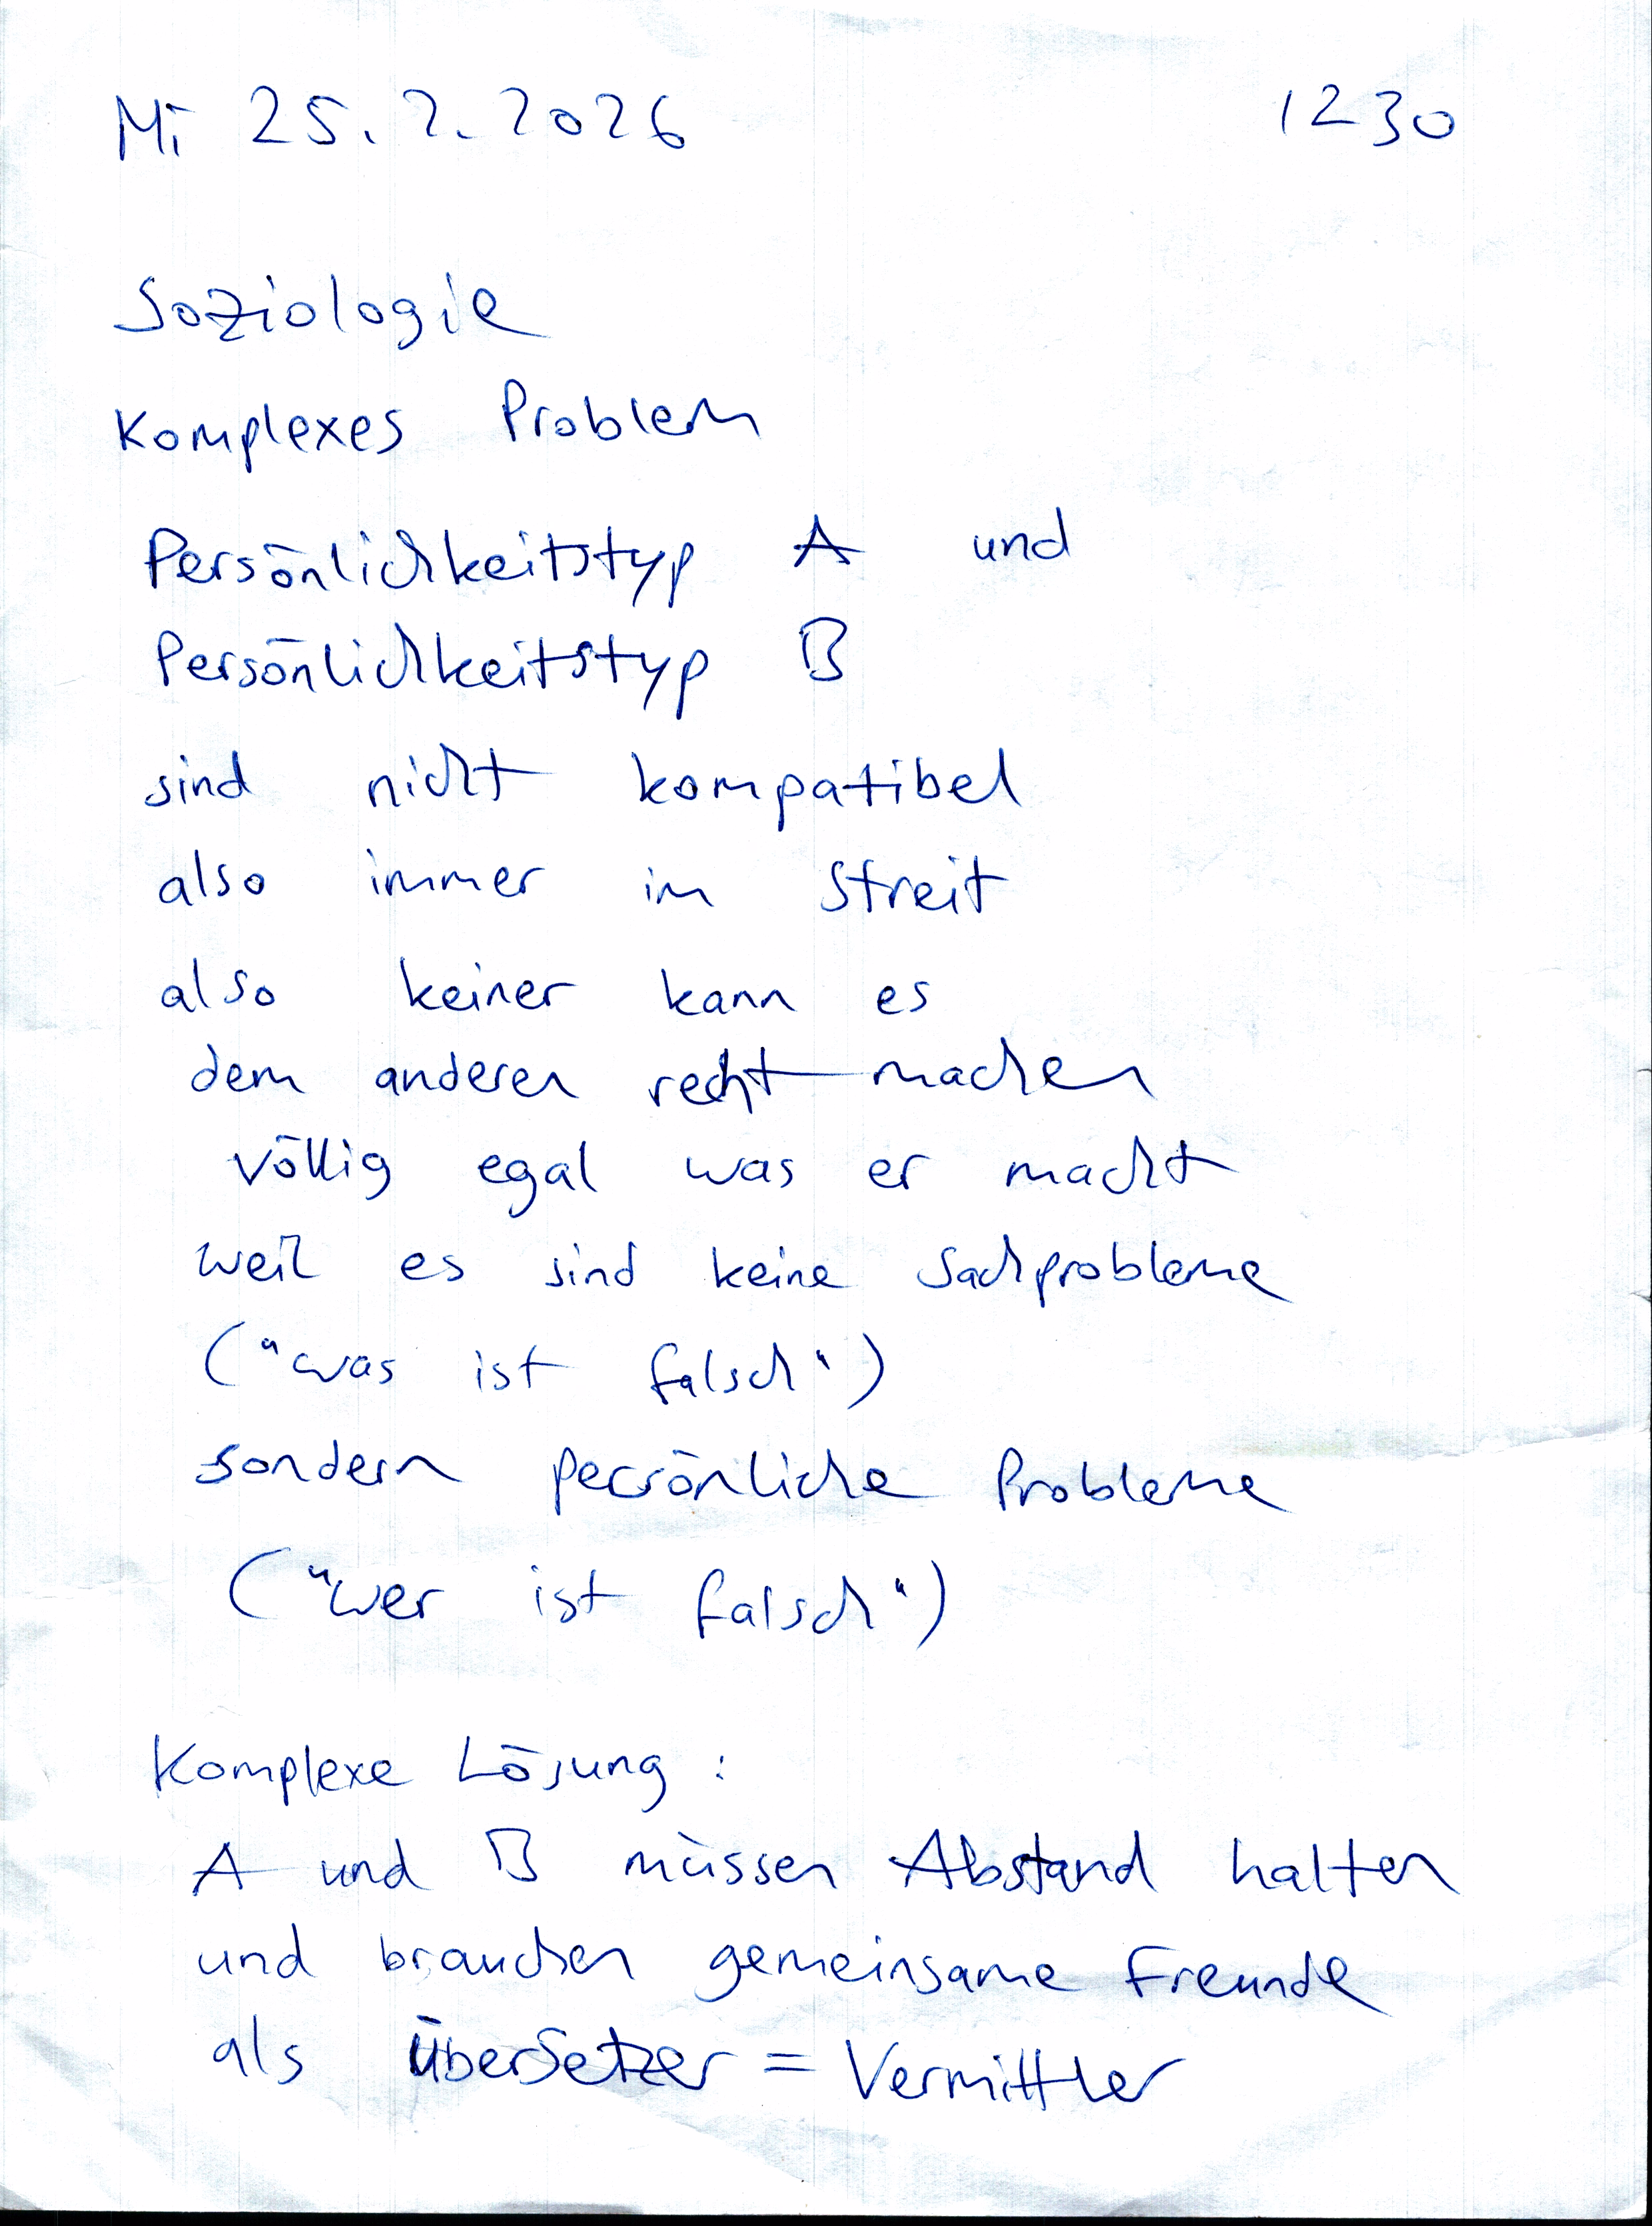 Mi 25.2.2026 1230
Soziologie
Komplexes Problem
Persönlichkeitstyp A und
Persönlichkeitstyp B
sind nicht kompatibel
also immer im Streit
also keiner kann es
dem anderen recht machen
völlig egal was er macht
weil es sind keine Sachprobleme
("was ist falsch")
sondern persönliche Probleme
("wer ist falsch")
Komplexe Lösung :
A und B müssen Abstand halten
und brauchen gemeinsame Freunde
als Übersetzer = Vermittler